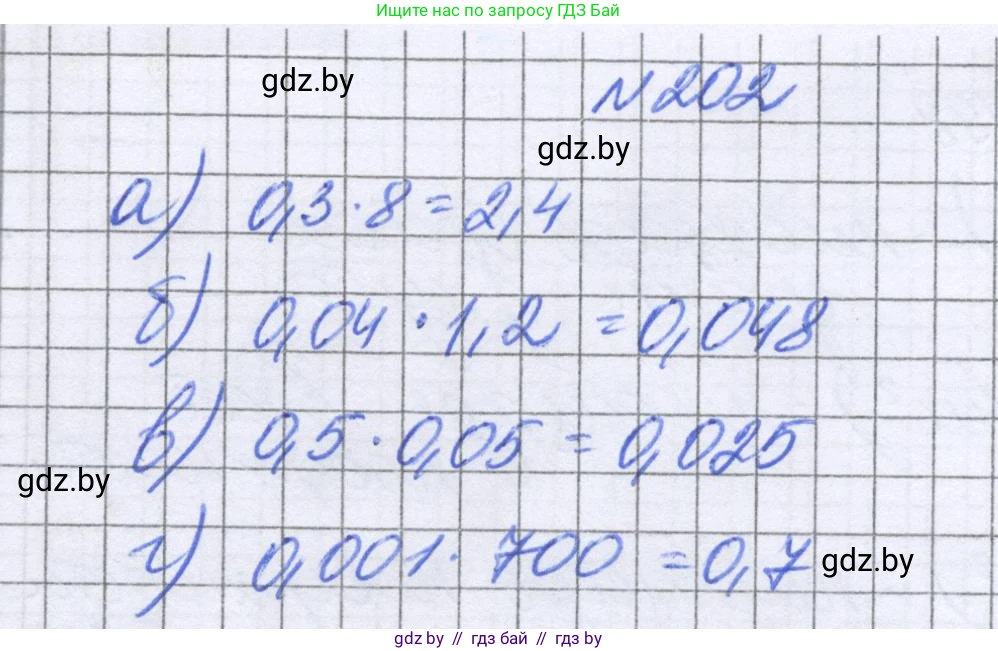 Ищите нас по запросу ГДЗ Бай
gdz.by
№ 202
gdz.by
а) 0,3 · 8 = 2,4
б) 0,04 · 1,2 = 0,048
в) 0,5 · 0,05 = 0,025
gdz.by
г) 0,001 · 700 = 0,7
gdz.by
gdz by // гдз бай // гдз by